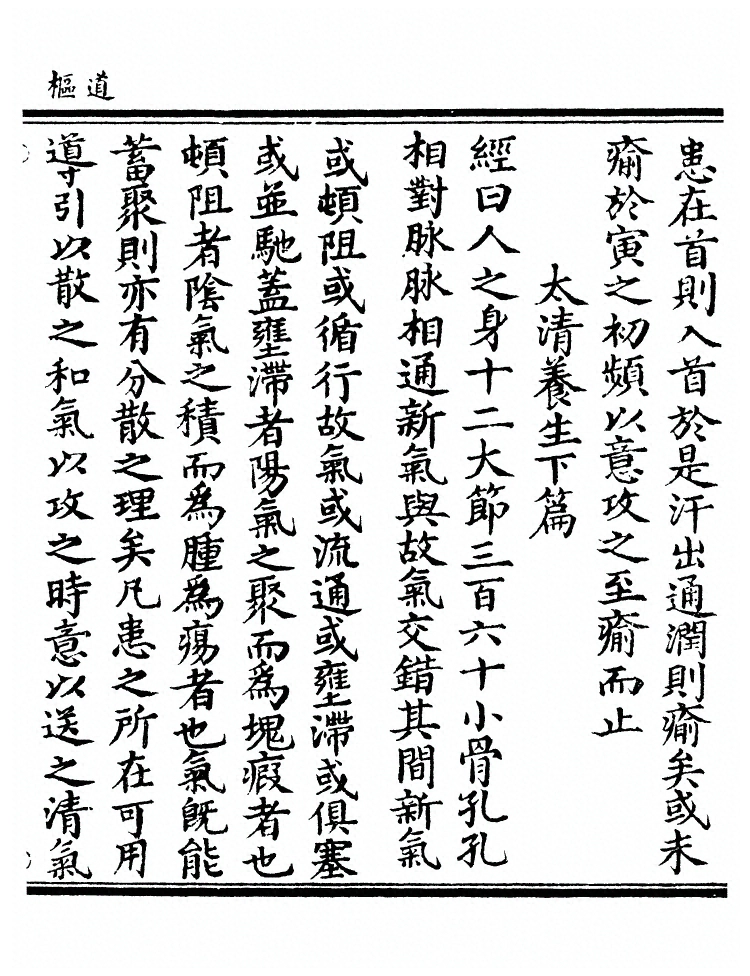 道樞
患在首則入首於是汗出通潤則瘉矣或未
瘉於寅之初頻以意攻之至瘉而止
太清養生下篇
經曰人之身十二大節三百六十小骨孔孔
相對脉脉相通新氣與故氣交錯其間新氣
或頓阻或循行故氣或流通或壅滯或俱塞
或並馳蓋壅滯者陽氣之聚而爲塊瘕者也
頓阻者陰氣之積而爲腫爲瘍者也氣旣能
蓄聚則亦有分散之理矣凡患之所在可用
導引以散之和氣以攻之時意以送之清氣